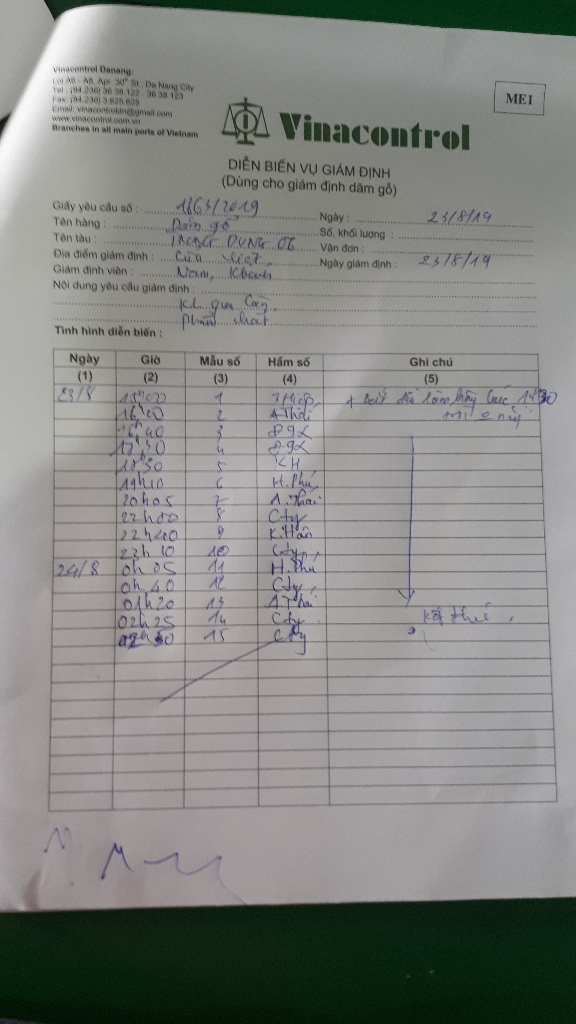 Vinacontrol Danang:
Lot A6 - A8, Apr. 30th St., Da Nang City
Tel : (84.236) 36.38.122 - 36.38.123
Fax: (84.236) 3.625.625
Email: vinacontroldn@gmail.com
www.vinacontrol.com.vn
Branches in all main ports of Vietnam
ME1
Vinacontrol
DIỄN BIẾN VỤ GIÁM ĐỊNH
(Dùng cho giám định dăm gỗ)
Giấy yêu cầu số : 1663/2019 Ngày : 23/8/19
Tên hàng : Dăm gỗ Số, khối lượng :
Tên tàu : DUNG 06 Vân đơn :
Địa điểm giám định : Cửa Việt, Ngày giám định : 23/8/19
Giám định viên : Nam, Khánh
Nội dung yêu cầu giám định :
KL qua Cân,
phẩm chất
Tình hình diễn biến :
Ngày Giờ Mẫu số Hầm số Ghi chú
(1) (2) (3) (4) (5)
23/8 15h00 1
16h00 2 A Thái
16h40 3
17h30 4
18h30 5 KH
19h10 6 H.Phú,
20h05 7 A.Thái
22h00 8 Cty
22h40 9 K.Hân
23h10 10 Cty,
24/8 0h05 11 H.Phú
0h40 12 Cty,
01h20 13 A.Thái
02h25 14 Cty Kết thúc.
15 Cty